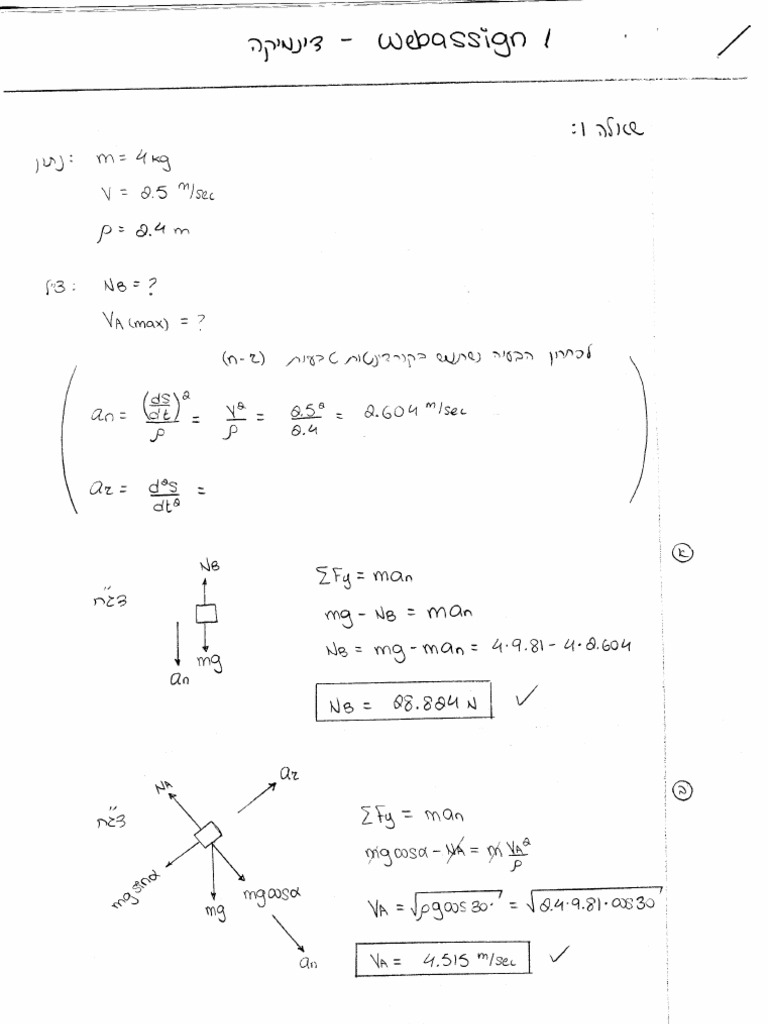 דינמיקה - webassign 1
שאלה 1:
נתון: m = 4 kg
V = 2.5 m/sec
ρ = 2.4 m
צ"ל: NB = ?
VA(max) = ?
לפתרון הבעיה נשתמש בקורדינטות טבעיות (n-τ)
an = (ds/dt)²/ρ = V²/ρ = 2.5²/2.4 = 2.604 m/sec
aτ = d²s/dt² =
א
דג"ח
NB
mg
an
ΣFy = man
mg - NB = man
NB = mg - man = 4·9.81 - 4·2.604
NB = 28.824 N ✓
ב
דג"ח
NA
aτ
mg sinα
mg
mg cosα
an
ΣFy = man
mgcosα - NA = m VA²/ρ
VA = √ρgcos30° = √2.4·9.81·cos30
VA = 4.515 m/sec ✓